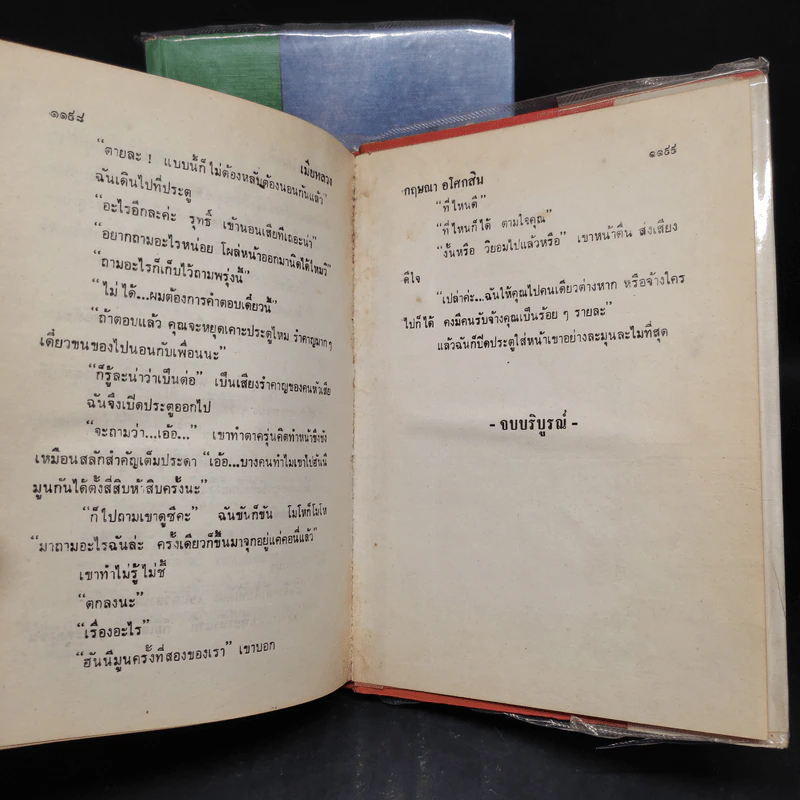 ๑๑๙๘
เมียหลวง
“ตายละ ! แบบนี้ก็ไม่ต้องหลับต้องนอนกันแล้ว”
ฉันเดินไปที่ประตู
“อะไรอีกละค่ะ รุทธิ์ เข้านอนเสียทีเถอะน่า”
“อยากถามอะไรหน่อย โผล่หน้าออกมานิดได้ไหมวิ
“ถามอะไรก็เก็บไว้ถามพรุ่งนี้”
“ไม่ได้...ผมต้องการคำตอบเดี๋ยวนี้”
“ถ้าตอบแล้ว คุณจะหยุดเคาะประตูไหม รำคาญมาก ๆ
เดี๋ยวขนของไปนอนกับเพื่อนนะ”
“ก็รู้ละน่าว่าเป็นต่อ” เป็นเสียงรำคาญของคนหัวเสีย
ฉันจึงเปิดประตูออกไป
“จะถามว่า...เอ้อ...” เขาทำตาครุ่นคิดทำหน้าขึงขัง
เหมือนสลักสำคัญเต็มประดา “เอ้อ...บางคนทำไมเขาไปฮันนี
มูนกันได้ตั้งสี่สิบห้าสิบครั้งนะ”
“ก็ไปถามเขาดูซีคะ” ฉันขันก็ขัน โมโหก็โมโห
“มาถามอะไรฉันล่ะ ครั้งเดียวก็ขึ้นมาจุกอยู่แค่คอนี่แล้ว”
เขาทำไม่รู้ไม่ชี้
“ตกลงนะ”
“เรื่องอะไร”
“ฮันนีมูนครั้งที่สองของเรา” เขาบอก
๑๑๙๙
กฤษณา อโศกสิน
“ที่ไหนดี”
“ที่ไหนก็ได้ ตามใจคุณ”
“งั้นหรือ วิยอมไปแล้วหรือ” เขาหน้าตื่น ส่งเสียง
ดีใจ
“เปล่าค่ะ...ฉันให้คุณไปคนเดียวต่างหาก หรือจ้างใคร
ไปก็ได้ คงมีคนรับจ้างคุณเป็นร้อย ๆ รายละ”
แล้วฉันก็ปิดประตูใส่หน้าเขาอย่างละมุนละไมที่สุด
- จบบริบูรณ์ -